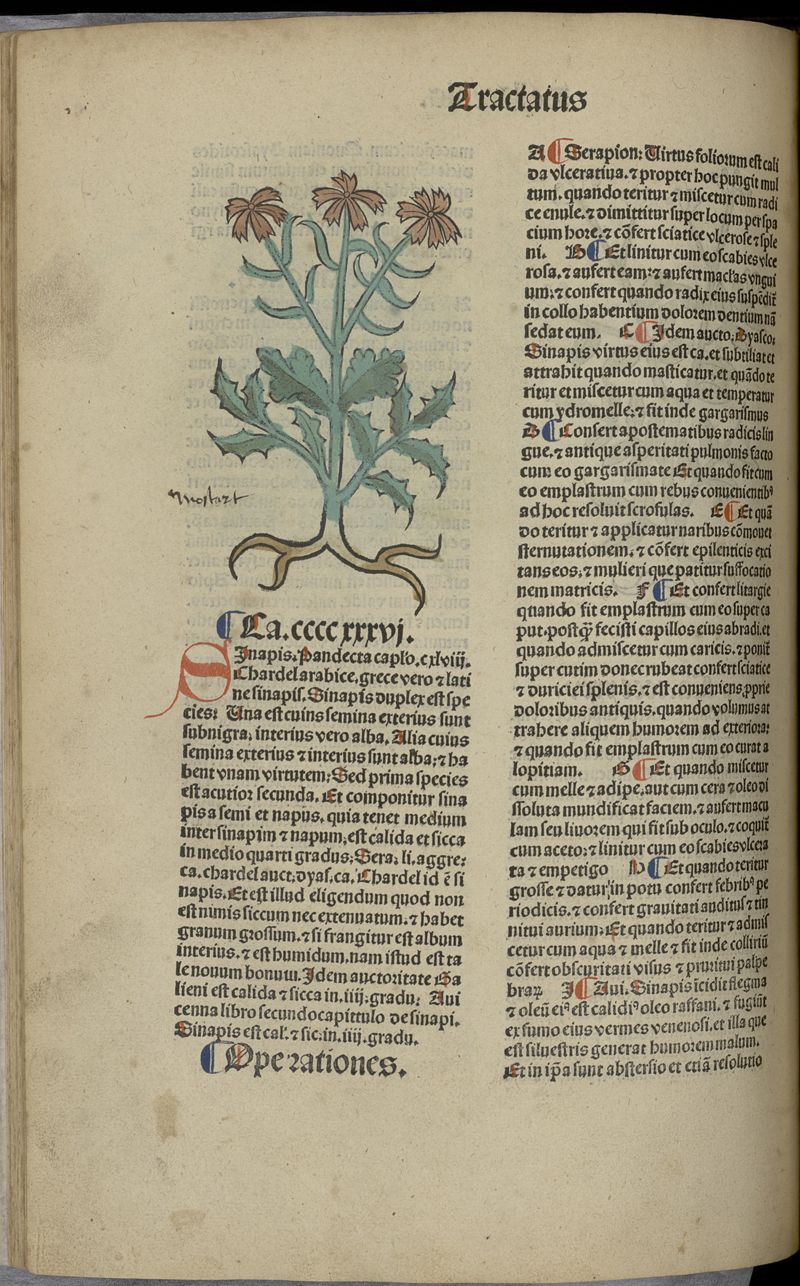 Tractatus
Mostart
¶ Ca.ccccxxxvj.
SInapis. Pandecta capl'o.cxlviij.
Chardel arabice.grece vero ⁊ lati
ne sinapis. Sinapis duplex est spe
cies: Una est cuius semina exterius sunt
subnigra, interius vero alba. Alia cuius
semina exterius ⁊ interius sunt alba, ⁊ ha
bent vnam virtutem: Sed prima species
est acutior secunda. Et componitur sina
pis a semi et napus, quia tenet medium
inter sinapim ⁊ napum, est calida et sicca
in medio quarti gradus: Sera. li. aggre:
ca. chardel auct. dyas. ca. Chardel id ē si
napis. Et est illud eligendum quod non
est nimis siccum nec extenuatum. ⁊ habet
granum grossum. ⁊ si frangitur est album
interius. ⁊ est humidum, nam istud est ta
le nouum bonum. Idem auctoritate Ga
lieni est calida ⁊ sicca in .iiij. gradu: Aui
cenna libro secundo capittulo de sinapi.
Sinapis est cal. ⁊ sic. in .iiij. gradu.
¶ Operationes.
A ¶ Serapion: Uirtus foliorum est cali
da vlceratiua. ⁊ propter hoc pungit mul
tum. quando teritur ⁊ miscetur cum radi
ce enule. ⁊ dimittitur super locum per spa
cium hore. ⁊ cōfert sciatice vlcerose ⁊ sple
ni. B ¶ Et linitur cum eo scabies vlce
rosa. ⁊ aufert eam: ⁊ aufert maclas vngui
um: ⁊ confert quando radix eius suspēdit̄
in collo habentium dolorem dentium nā
sedat eum. C ¶ Idem aucto. Dyasco:
Sinapis virtus eius est ca. et subtiliat et
attrahit quando masticatur. et quādo te
ritur et miscetur cum aqua et temperatur
cum ydromelle: ⁊ fit inde gargarismus
D ¶ Confert apostematibus radicis lin
gue. ⁊ antique asperitati pulmonis facto
cum eo gargarismate Et quando fit cum
eo emplastrum cum rebus conuenientibꝰ
ad hoc resoluit scrofulas. E ¶ Et quā
do teritur ⁊ applicatur naribus cōmouet
sternutationem. ⁊ cōfert epilenticis exci
tans eos. ⁊ mulieri que patitur suffocatio
nem matricis. F ¶ Et confert litargie
quando fit emplastrum cum eo super ca
put. postq̄ȝ fecisti capillos eius abradi. et
quando admiscetur cum caricis. ⁊ ponit̄
super cutim donec rubeat confert sciatice
⁊ duriciei splenis. ⁊ est conueniens, pprie
doloribus antiquis. quando volumus at
trahere aliquem humorem ad exteriora:
⁊ quando fit emplastrum cum eo curat a
lopitiam. G ¶ Et quando miscetur
cum melle ⁊ adipe. aut cum cera ⁊ oleo di
ssoluta mundificat faciem. ⁊ aufert macu
lam seu liuorem qui fit sub oculo. ⁊ coquit̄
cum aceto: ⁊ linitur cum eo scabies vlcera
ta ⁊ empetigo H ¶ Et quando teritur
grosse ⁊ datur in potu confert febribꝰ pe
riodicis. ⁊ confert grauitati auditus ⁊ tin
nitui aurium: Et quando teritur ⁊ admis
cetur cum aqua ⁊ melle ⁊ fit inde colliriū
cōfert obscuritati visus ⁊ pruritui palpe
braꝝ I ¶ Aui. Sinapis īcidit flegma
⁊ oleū eiꝰ est calidiꝰ oleo raffani. ⁊ fugiūt
ex fumo eius vermes venenosi. et illa que
est siluestris generat humorem malum.
Et in ip̄a sunt abstersio et etiā resolutio